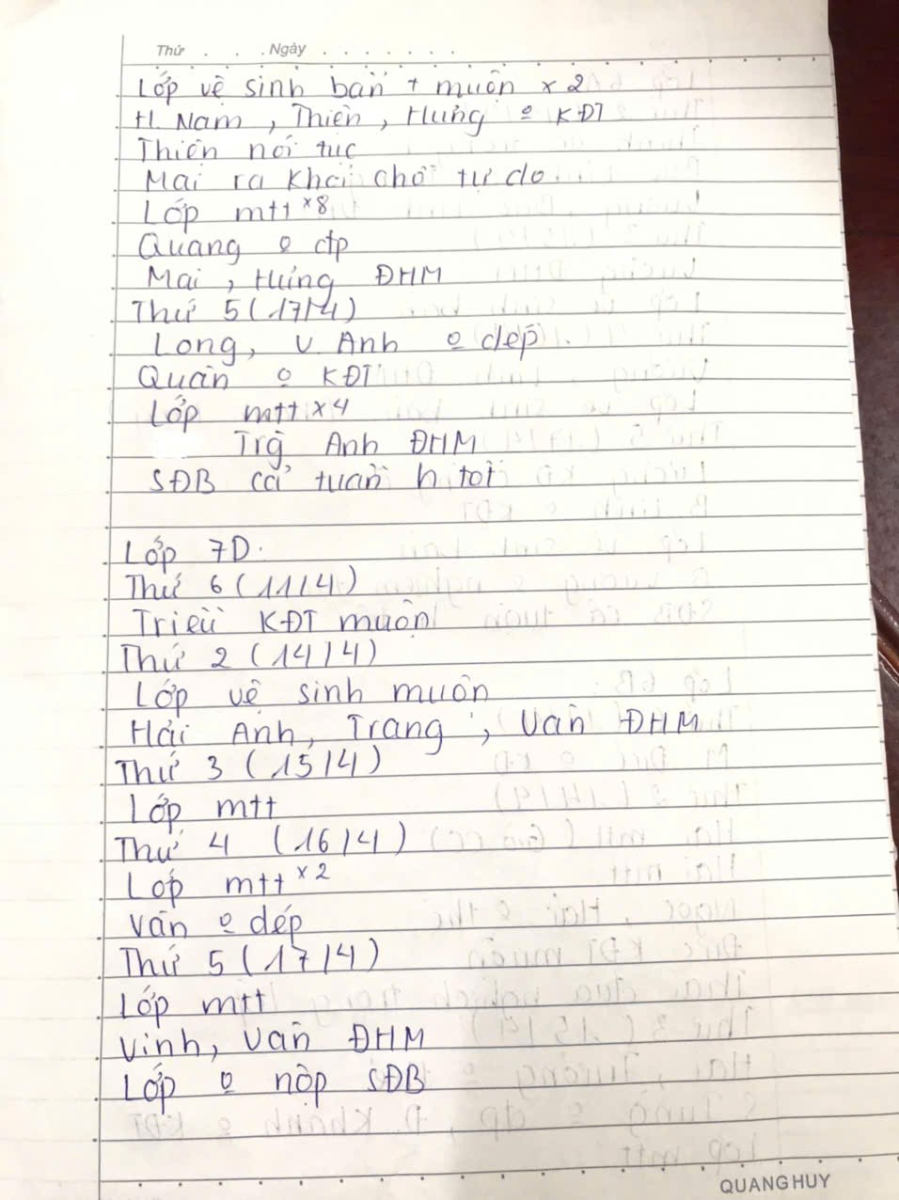 Thứ . . . .Ngày . . . . . . .
Lớp vệ sinh bẩn + muộn x 2
H. Nam, Thiên, Hưng o KĐT
Thiên nói tục
Mai ra khỏi chỗ tự do
Lớp mtt x8
Quang o đp
Mai, Hưng ĐHM
Thứ 5 (17/4)
Long, V. Anh o dép.
Quân o KĐT
Lớp mtt x4
Trg Anh ĐHM
SĐB cả tuần h tốt
Lớp 7D.
Thứ 6 (11/4)
Triều KĐT muộn
Thứ 2 (14/4)
Lớp vệ sinh muộn
Hải Anh, Trang, Vân ĐHM
Thứ 3 (15/4)
Lớp mtt
Thứ 4 (16/4)
Lớp mtt x2
Vân o dép
Thứ 5 (17/4)
Lớp mtt
Vinh, Vân ĐHM
Lớp o nộp SĐB
QUANG HUY